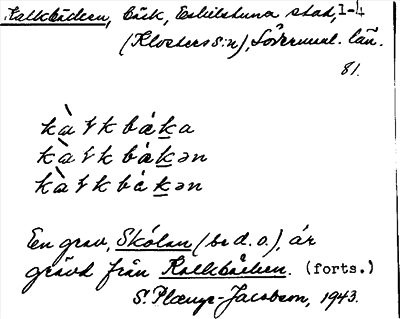 Kalkbäcken, bäck, Eskilstuna stad, 1-4
(Klosters s:n), Söderman. län.
81.
kàɬkbáka
kàɬkbákən
kàɬkbákən
En grav, Skólan (bed. o.), är
grävd från Kalkbäcken. (forts.)
S. Plænge-Jacobson, 1943.